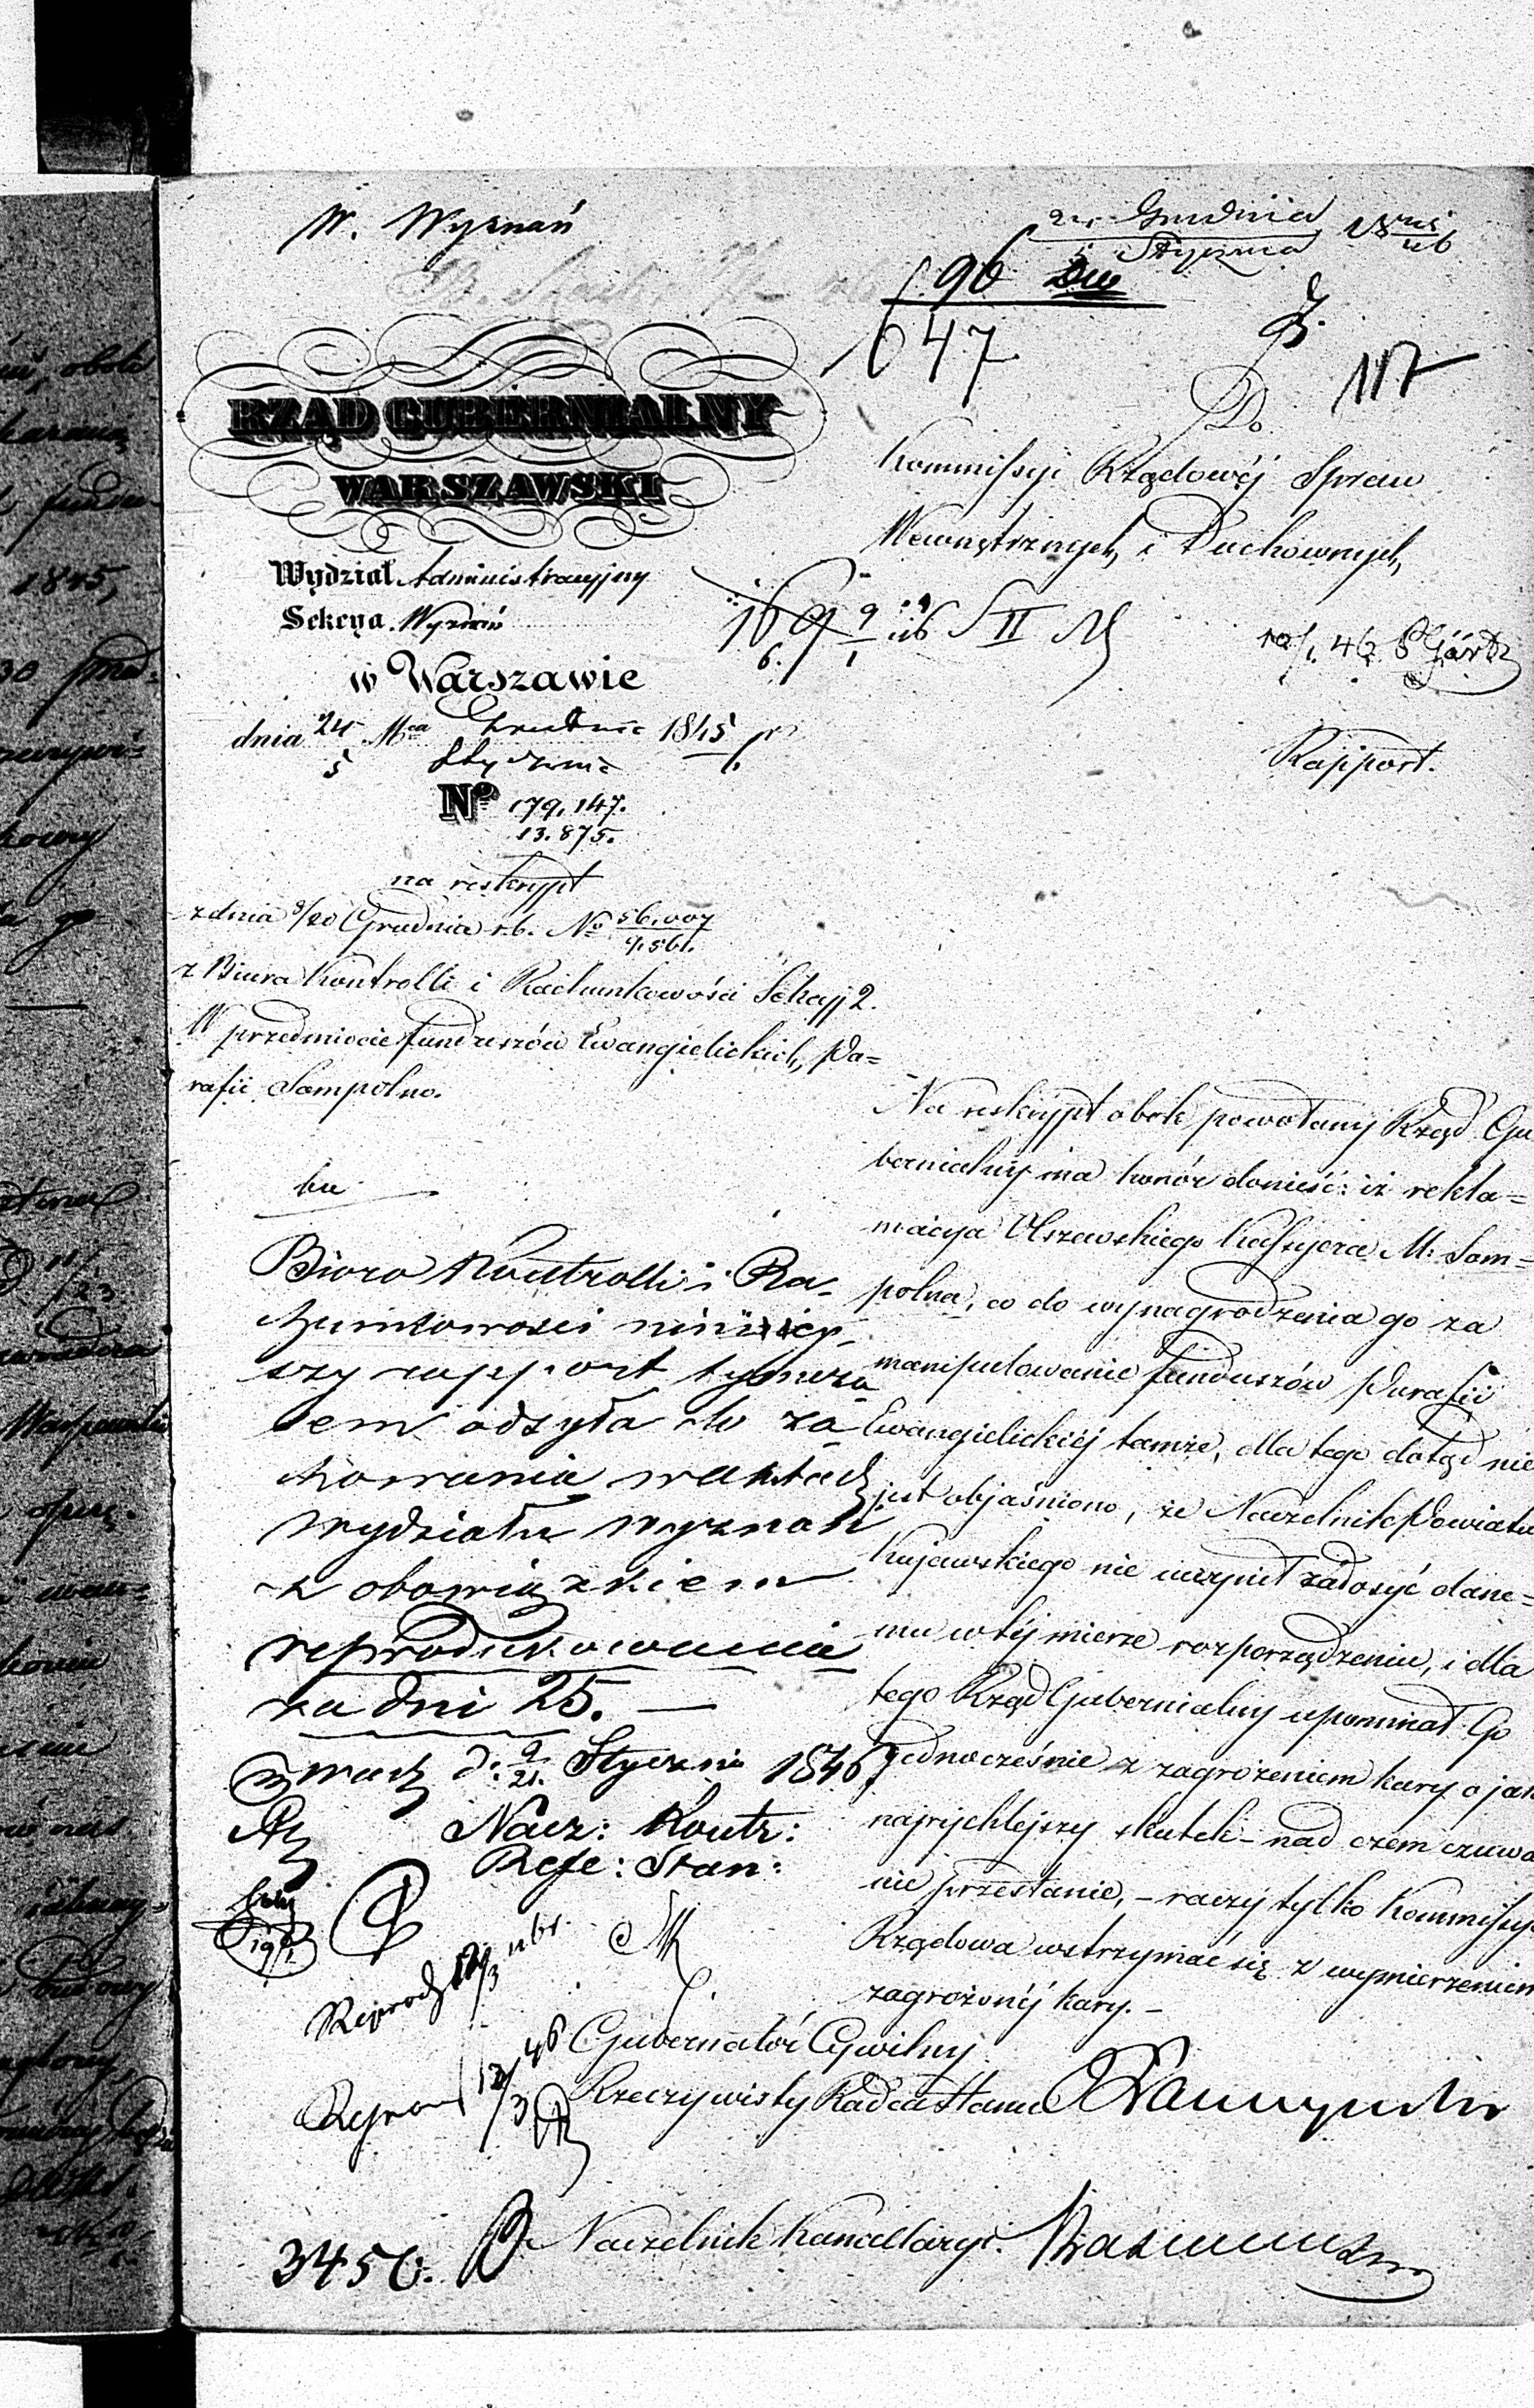 W. Wyznań
24 Grudnia 1845
5 Stycznia 46
96
647
117
RZĄD GUBERNIALNY
WARSZAWSKI
Wydział Administracyjny
Sekcya Wyznań
w Warszawie
dnia 24 Mca Grudnia 1845/6
5 Stycznia
No 179,147.
13.875.
na reskrypt
z dnia 8/20 Grudnia r.b. No 56,007
9,561.
z Biura Kontrolli i Rachunkowości Sekcyi 2.
W przedmiocie funduszów Ewangielickich, Pa=
rafii Sompolno.
Do
Kommissyi Rządowéj Spraw
Wewnętrznych, i Duchownych,
Rapport.
Na reskrypt obok powołany Rząd Gu
bernialny ma honór donieść: iż rekla=
macya Olszewskiego Kassyera M: Som=
polna, co do wynagrodzenia go za
manipulowanie funduszów Parafii
Ewangielickiéj tamże, dla tego dotąd nie
jest objaśniono, że Naczelnik Powiatu
Kujawskiego nie uczynił zadosyć dane=
mu w téj mierze rozporządzeniu, i dla
tego Rząd Gubernialny upominał Go
jednocześnie z zagrożeniem kary o jak
najrychlejszy skutek – nad czem czuwać
nie przestanie, – raczy tylko Kommissya
Rządowa wstrzymać się z wymierzeniem
zagrożonéj kary. –
Biuro Kontrolli i Ra-
chunkowości niniéj-
szy rapport tymcza
sem odsyła do za
chowania w aktach
Wydziału Wyznań
z obowiązkiem
reprodukowania
za dni 25. –
w Warsz d: 9/21. Stycznia 1846
Nacz: Kontr:
Refe: Stan:
Gubernator Cywilny
Rzeczywisty Radca Stanu
Naczelnik Kancellaryi.
3456.